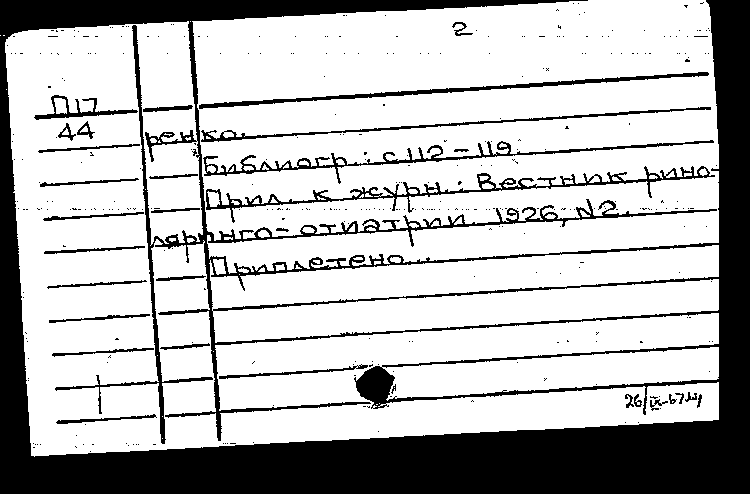 2
П17
44
ренко.
Библиогр.: с 112-119.
Прил. к журн.: Вестник рино-
ляринго-отиатрии 1926, N2.
Приплетено...
26/IX-67